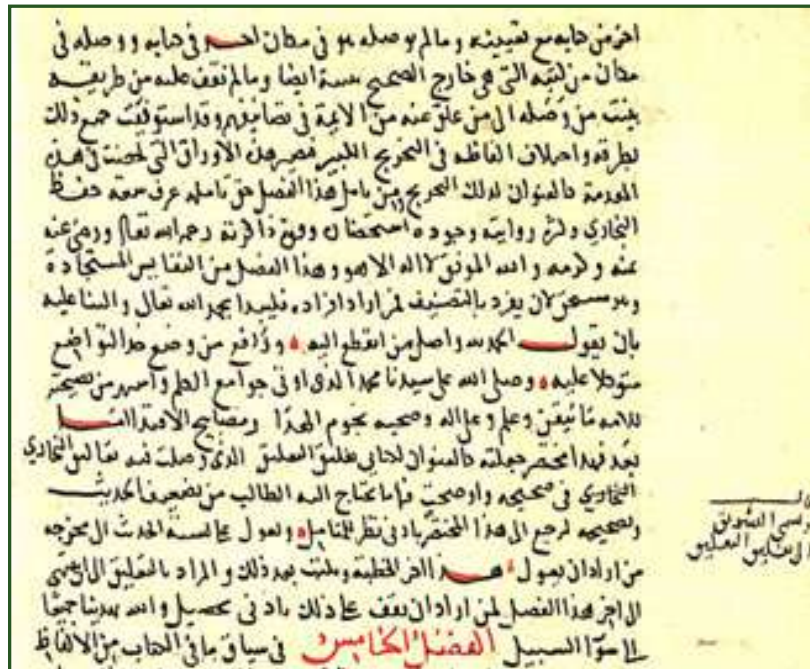 اخر من كتابه مع تعيينه وما لم يوصله هو في مكان اخر في كتابه ووصله في
مكان من كتبه التي هي خارج الصحيح بينته ايضا وما لم نقف عليه من طريقه
بينت من وصله الى من علق عنه من الايمة في تصانيفهم وقد استوفيت جميع ذلك
بطرقه واختلاف الفاظه في التخريج الكبير فصر هذه الاوراق التي لخصت في هذه
المقدمة كالعنوان لذلك التخريج ومن تامل هذا الفصل حق تامله عرف سعة حفظ
البخاري وكثرة روايته وجوده استحضاره وقوة ذاكرته رحمه الله تعالى ورضي عنه
بمنه وكرمه والله الموفق لا اله الا هو وهذا الفصل من النفايس المستجادة
وهو لان يفرد بالتصنيف لمن اراد افراده فليبدا بحمد الله تعالى والثنا عليه
بان يقول الحمد لله واصل من انقطع اليه ورافع من وضع خد التواضع
متوكلا عليه وصلى الله على سيدنا محمد الذي اوتي جوامع الكلم واسهر من نصيحته
للامه وعلم وعلى اله وصحبه نجوم الهدا ومصابيح الاقتدا اما
بعد فهذا مختصر جعلته كالعنوان لكتابي تغليق التعليق الذي وصلت فيه تعاليق البخاري
البخاري في صحيحه واوضحت فيه ما يحتاج اليه الطالب من تضعيف الحديث
وتصحيحه ليرجع الى هذا المختصر بادنى نظر للمتامل ويعول على نسبة الحديث الى مخرجه
من اراد ان يعول هذا اخر الخطبة ويكتب بعد ذلك والمراد بالتعليق الى ان ينتهي
الى اخر هذا الفصل لمن اراد ان يقف على ذلك بادنى تحصيل والله يهدينا جميعا
الى سوا السبيل الفصل الخامس في سياق ما في الكتاب من الالفاظ
التشويق
الى تغليق التعليق